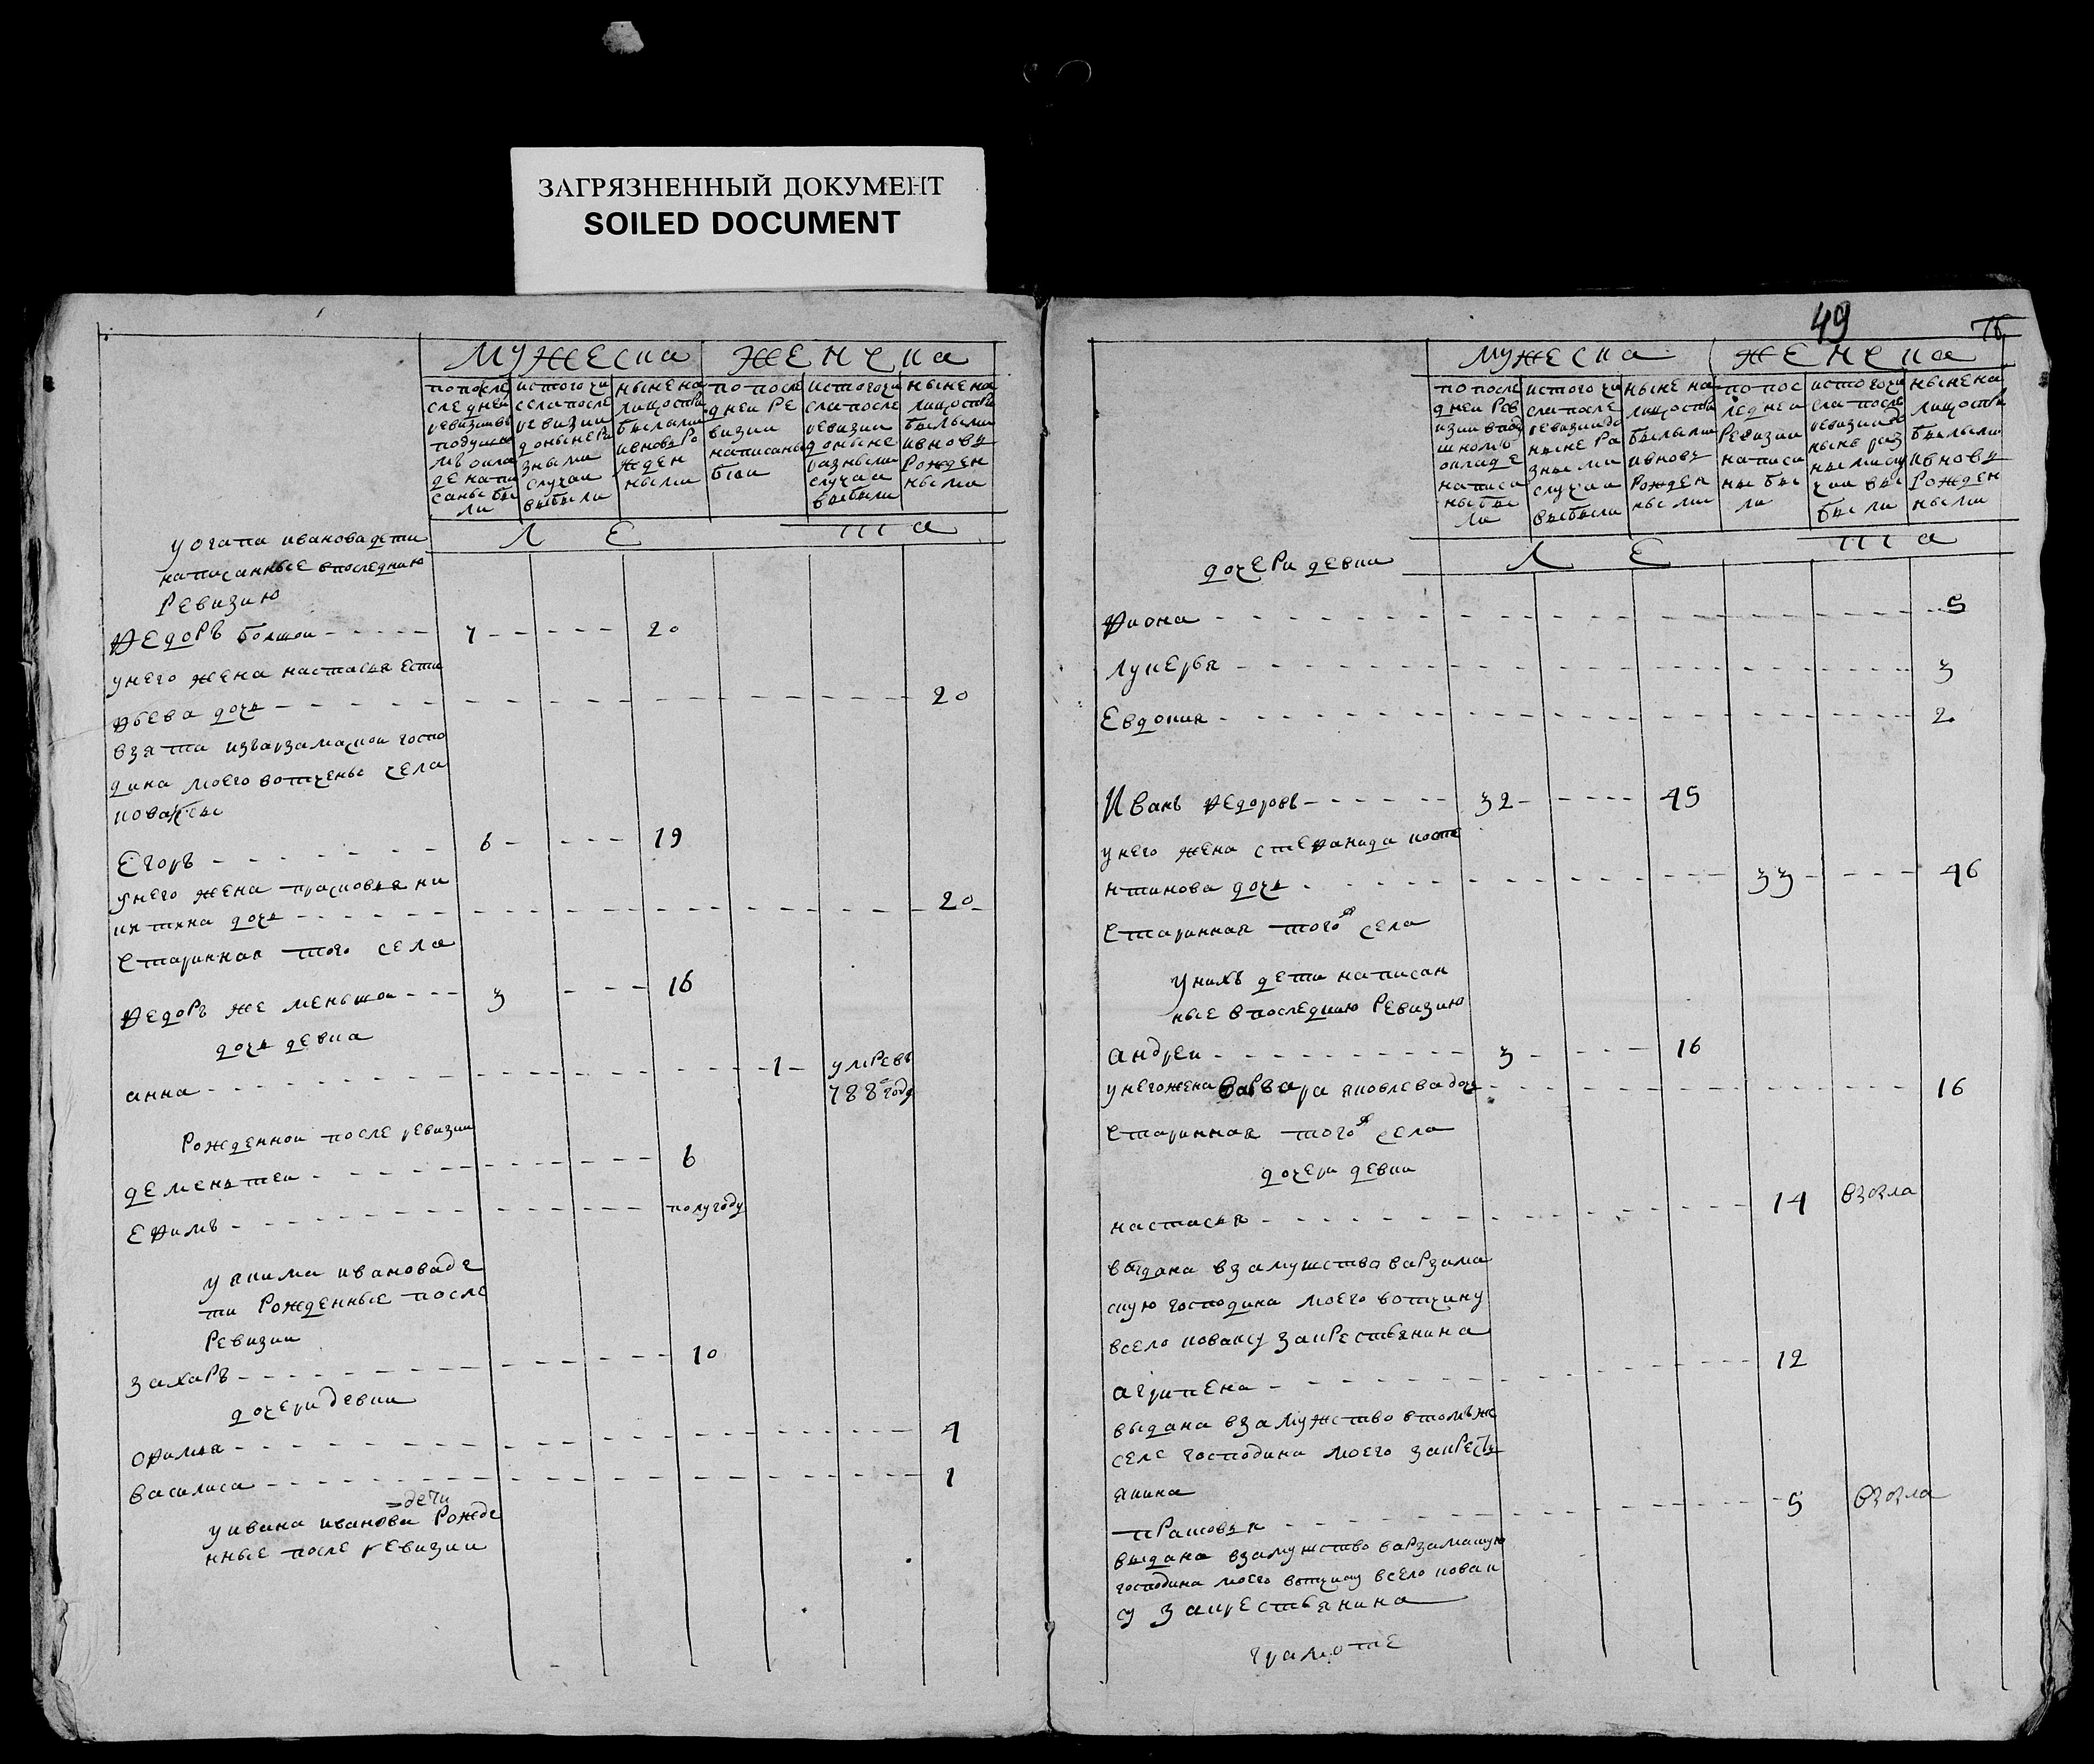 ЗАГРЯЗНЕННЫЙ ДОКУМЕНТ
SOILED DOCUMENT
Мужеска Женска
по после
дней
ревизии въ
подушно
мъ окла
де напи
саны бы
ли
ис того чи
сла после
ревизии
до ныне ра
зными
случаи
выбыли
ныне на
лицо ств
былыми
и вновь ро
жден
ными
по после
дней ре
визии
написаны
были
ис того чи
сла после
ревизии
до ныне
разными
случаи
выбыли
ныне на
лицо ств
былыми
и вновь
рожден
ными
Л Е Т а
у огапа иванова дети
написанные в последнюю
Ревизию
Ѳедоръ болшой - - - - 7 - - - - 20
у него жена настасья
Ѳьева дочь - - - - 20
взята из варзамаской госпо
дина моего вотчены села
новаксы
Егоръ - - - - 6 - - - - 19
у него жена прасковья ни
китина дочь - - - - 20
старинная того села
Ѳедоръ же меньшой - - - 3 - - - 16
дочь девка
анна - - - - 1 - умре въ
788 году
Рожденной после ревизии
дементей - - - - 6
Еѳимъ - - - - полугоду
у якима иванова де
ти Рожденные после
Ревизии
захаръ - - - - 10
дочери девки
оѳимья - - - - 4
василиса - - - - 1
= дети
у ивана иванова Рожде
нные после ревизии
49
Мужеска Женска
по после
дней рев
изии в поду
шномъ
окладе
написа
ны бы
ли
ис того чи
сла после
ревизии до
ныне ра
зными
случаи
выбыли
ныне на
лицо ств
былыми
и вновь
рожден
ными
по пос
ледней
Ревизии
написа
ны бы
ли
ис того чи
сла после
ревизии до
ныне раз
ными слу
чаи вы
были
ныне на
лицо ств
былыми
и вновь
рожден
ными
Л Е Т а
дочери девки
Ѳиона - - - - 5
лукерья - - - - 3
Евдокия - - - - 2
Иванъ Ѳедоровъ - - - - 32 - - - - 45
у него жена стеѳанида косте
нтинова дочь - - - - 33 - - - - 46
старинная того ж села
у нихъ дети написан
ные в последнюю Ревизию
андрей - - - - 3 - - - - 16
у него жена варвара яковлева дочь - - - - 16
старинная того ж села
дочери девки
настасья - - - - 14
выдана в замужство варзама
скую господина моего вотчину
в село новаксу за крестьянина
агрипена - - - - 12
выдана в замужство в томъ же
селе господина моего за кресть
янина
прасковья - - - - 5
выдана в замужство варзамаскую
господина моего вотчину в село новак
су за крестьянина
грамоте